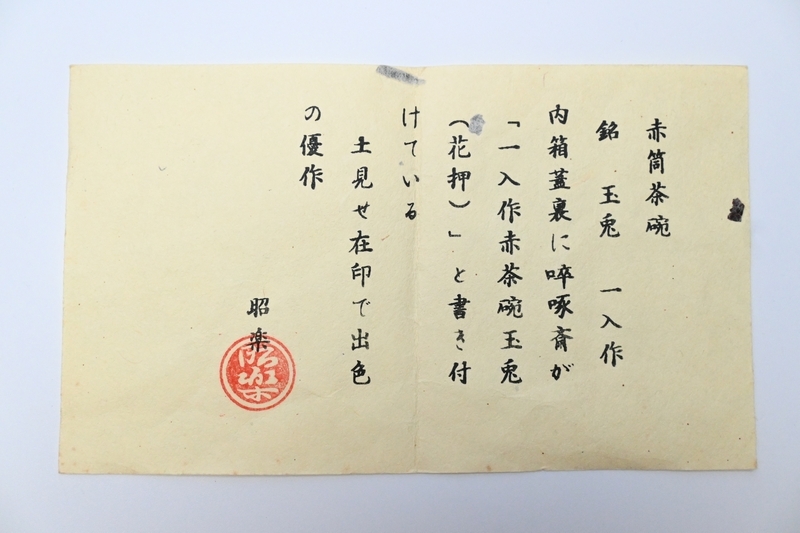 赤筒茶碗
銘　玉兎　一入作
内箱蓋裏に啐啄斎が
「一入作赤茶碗玉兎
（花押）」と書き付
けている
土見せ在印で出色
の優作
昭楽
昭楽